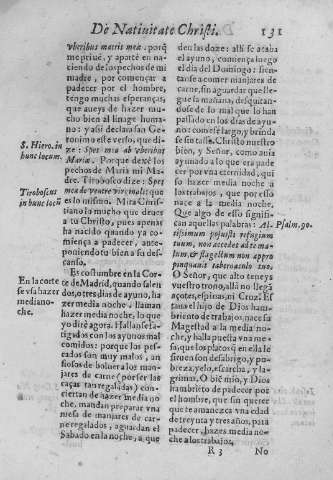 De Natiuitate Christi.
131
vberibus matris meæ. porq̃
me priuè, y apartè en na-
ciendo de los pechos de mi
madre, por començar a
padecer por el hombre,
tengo muchas esperanças,
que aueys de hazer mucho
bien al linage huma-
no: y assi declara san Ge-
ronimo este verso, que di-
ze: Spes mea ab vberibus
Mariæ. Porque dexè los
pechos de Maria mi Ma-
dre. Tirobosco dize: Spes
mea de ventre viri: molit que
es lo mismo. Mira Chris-
tiano lo mucho que deues
a tu Christo, pues apenas
ha nacido quando ya co-
miença a padecer, ante-
poniendo tu bien a su
descanso.
Es costumbre en la Cor-
te de Madrid, quando salen
dos, o tres dias de ayuno, ha
zer media noche, llaman
hazer media noche, lo que
yo dirè agora. Hallanse fa-
tigados con los ayunos mal
comidos: porque los pes-
cados son muy malos, an
siosos de boluer a los man-
jares de carne (por ser las
caças tan regaladas) con-
ciertan de hazer media no
che, mandan preparar vna
mesa de manjares de car-
ne regalados, aguardan el
Sabado en la noche, a que
S. Hiero. in
hunc locum.
Tirobosus
in hunc locũ
En la corte
se vsa hazer
media no-
che.
den las doze: alli se acaba
el ayuno, comiença luego
el dia del Domingo: sien-
tanse a comer manjares de
carne, sin aguardar que lle-
gue la mañana, desquitan-
dose de lo mal que lo han
passado en los dias de ayu-
no: comese largo, y brinda
se sin tassa. Christo nuestro
bien, y Señor, como auia
ayunado a lo que era pade
cer por vna eternidad, qui
so hazer media noche a
los trabajos, que por esso
nace a la media noche.
Que algo de esso signifi-
can aquellas palabras: Al-
tissimum posuisti refugium
tuum, non accedet ad te ma-
lum, & flagellum non appro
pinquauit tabernaculo tuo.
O Señor, que alto teneys
vuestro trono, allà no llegã
açotes, espinas, ni Cruz. Es
taua el hijo de Dios ham-
briento de trabajos, nace su
Magestad a la media no-
che, y halla puesta vna me-
sa, que los platos q̃ en ella le
siruen son desabrigo, y po-
breza, yelo, escarcha, y la-
grimas. O bié mio, y Dios
hambriẽto de padecer por
el hombre, que sin aguar-
dar que venga vna edad
de treynta y tres años, para
padecer, hazes media no-
che a los trabajos.
Psalm. 90.
R 3
No